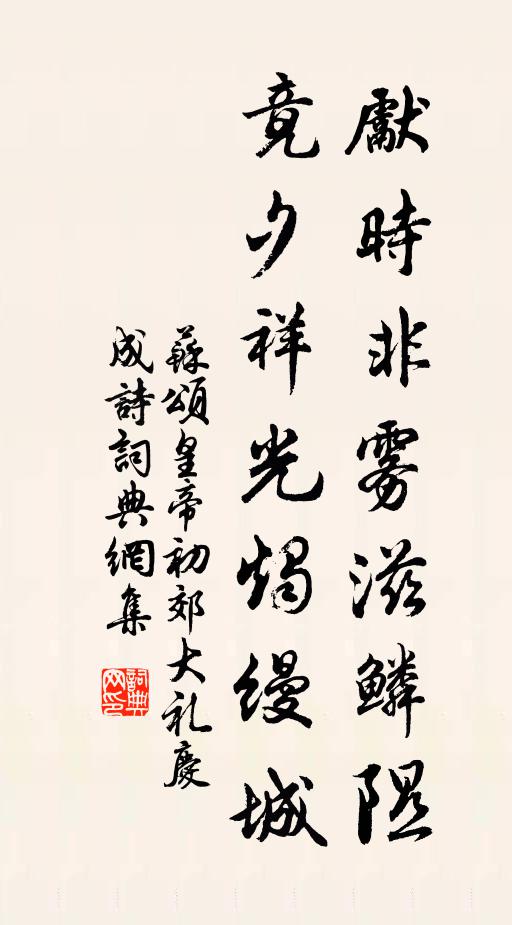 獻時非雾滋鱗隰
竟夕祥光燭縵城
蘇頌皇帝初郊大礼慶
成詩詞典網集
詞典网印